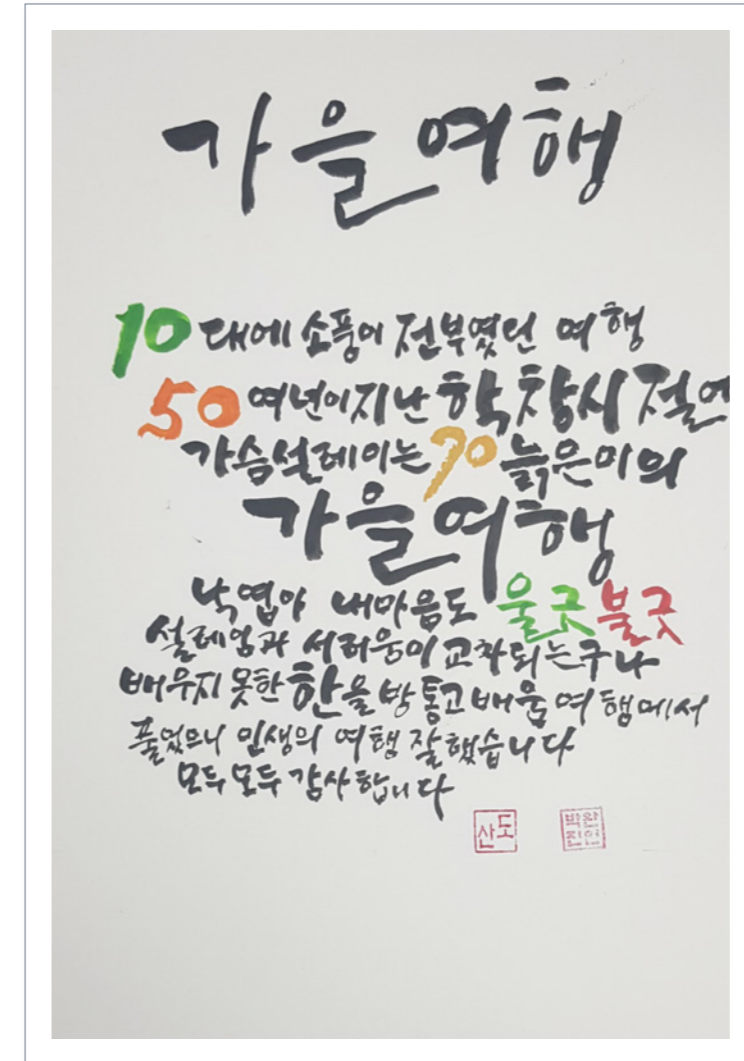 가을여행
10대에 소풍이 전부였던 여행
50여년이지난 학창시절에
가슴설레이는 70늙은이의
가을여행
낙엽아 내마음도 울긋불긋
설레임과 서러움이 교차되는구나
배우지 못한 한을 방통고 배움여행에서
풀었으니 인생의 여행 잘했습니다
모두모두 감사합니다
산도